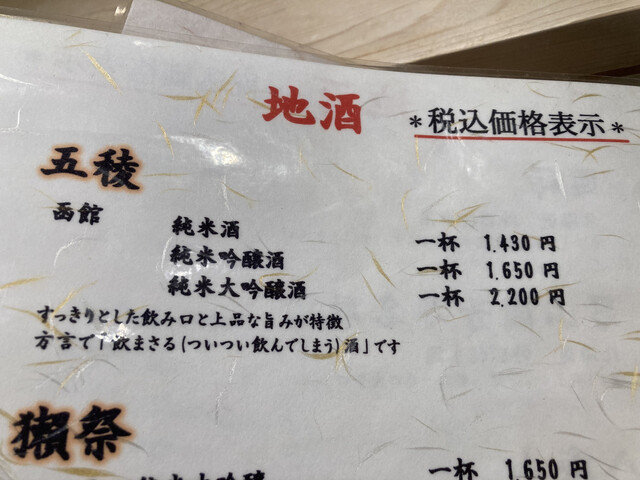 地酒
*税込価格表示*
五稜
函館
純米酒 一杯 1,430 円
純米吟醸酒 一杯 1,650 円
純米大吟醸酒 一杯 2,200 円
すっきりとした飲み口と上品な旨みが特徴
方言で「飲まさる(ついつい飲んでしまう)酒」です
獺祭
純米大吟醸 一杯 1,650 円